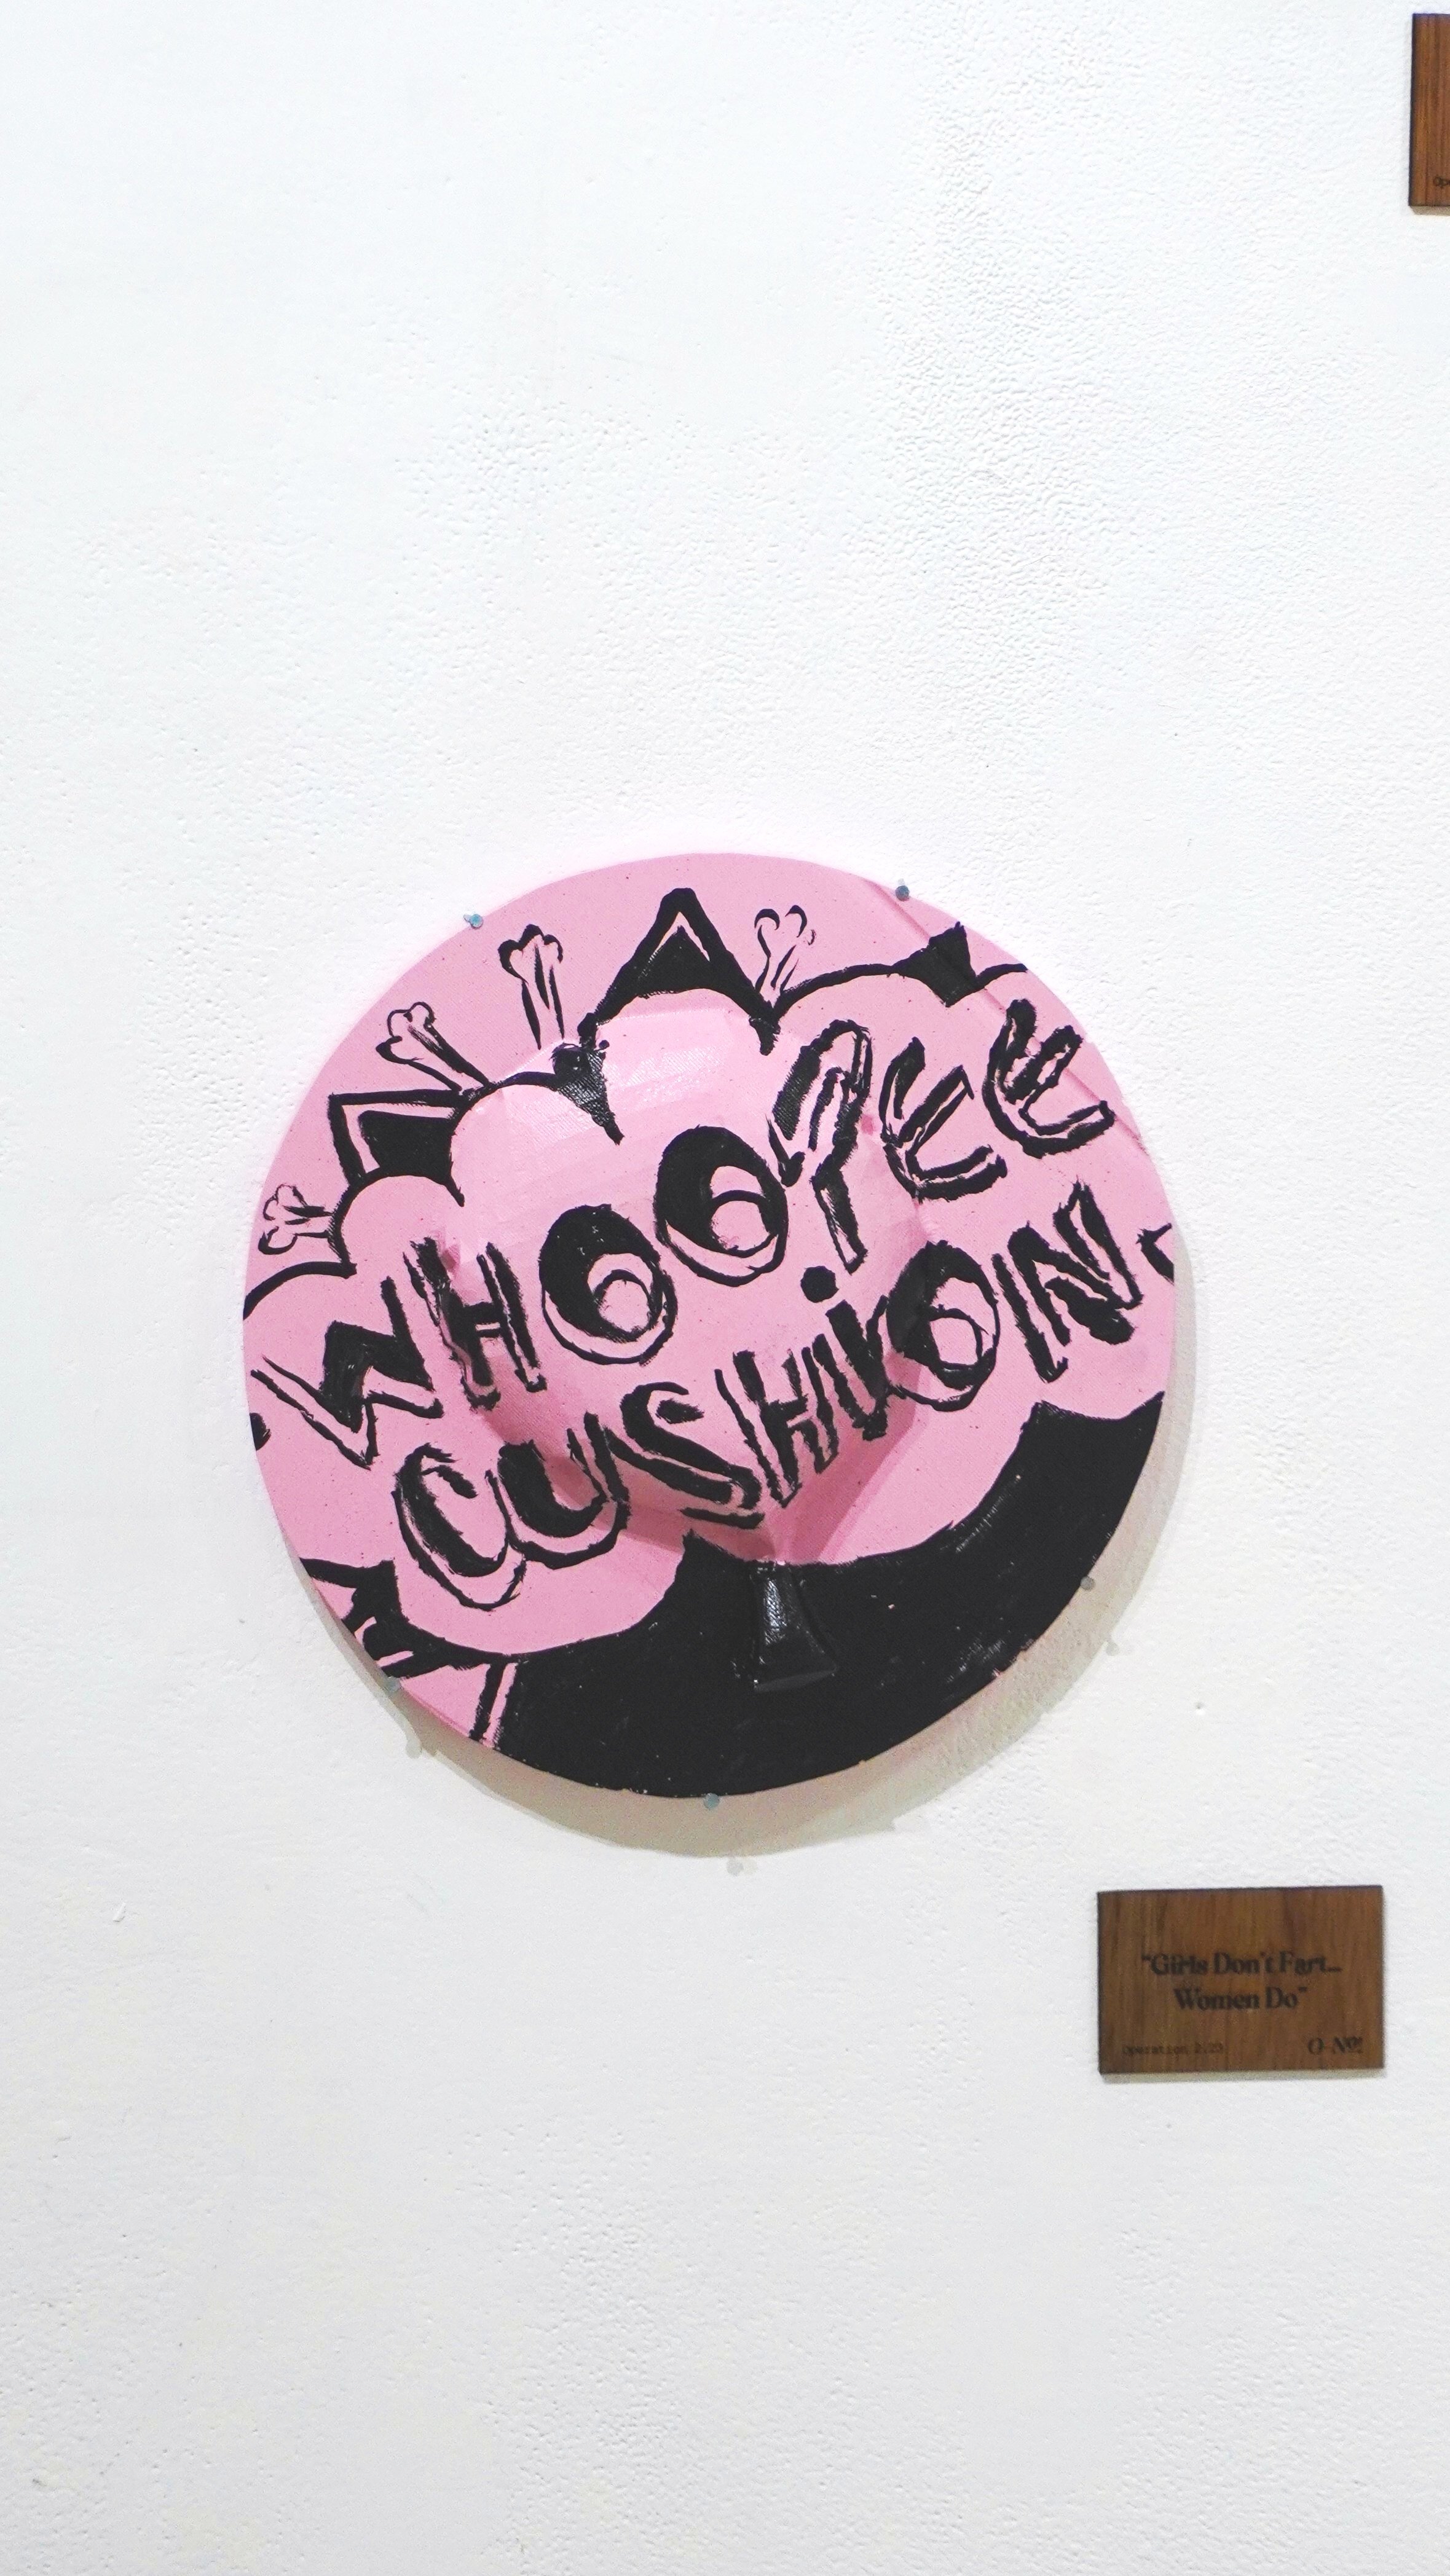 WHOOPEE
CUSHiON
"Girls Don't Fart...
Women Do"
Operation 2.23
O-No!